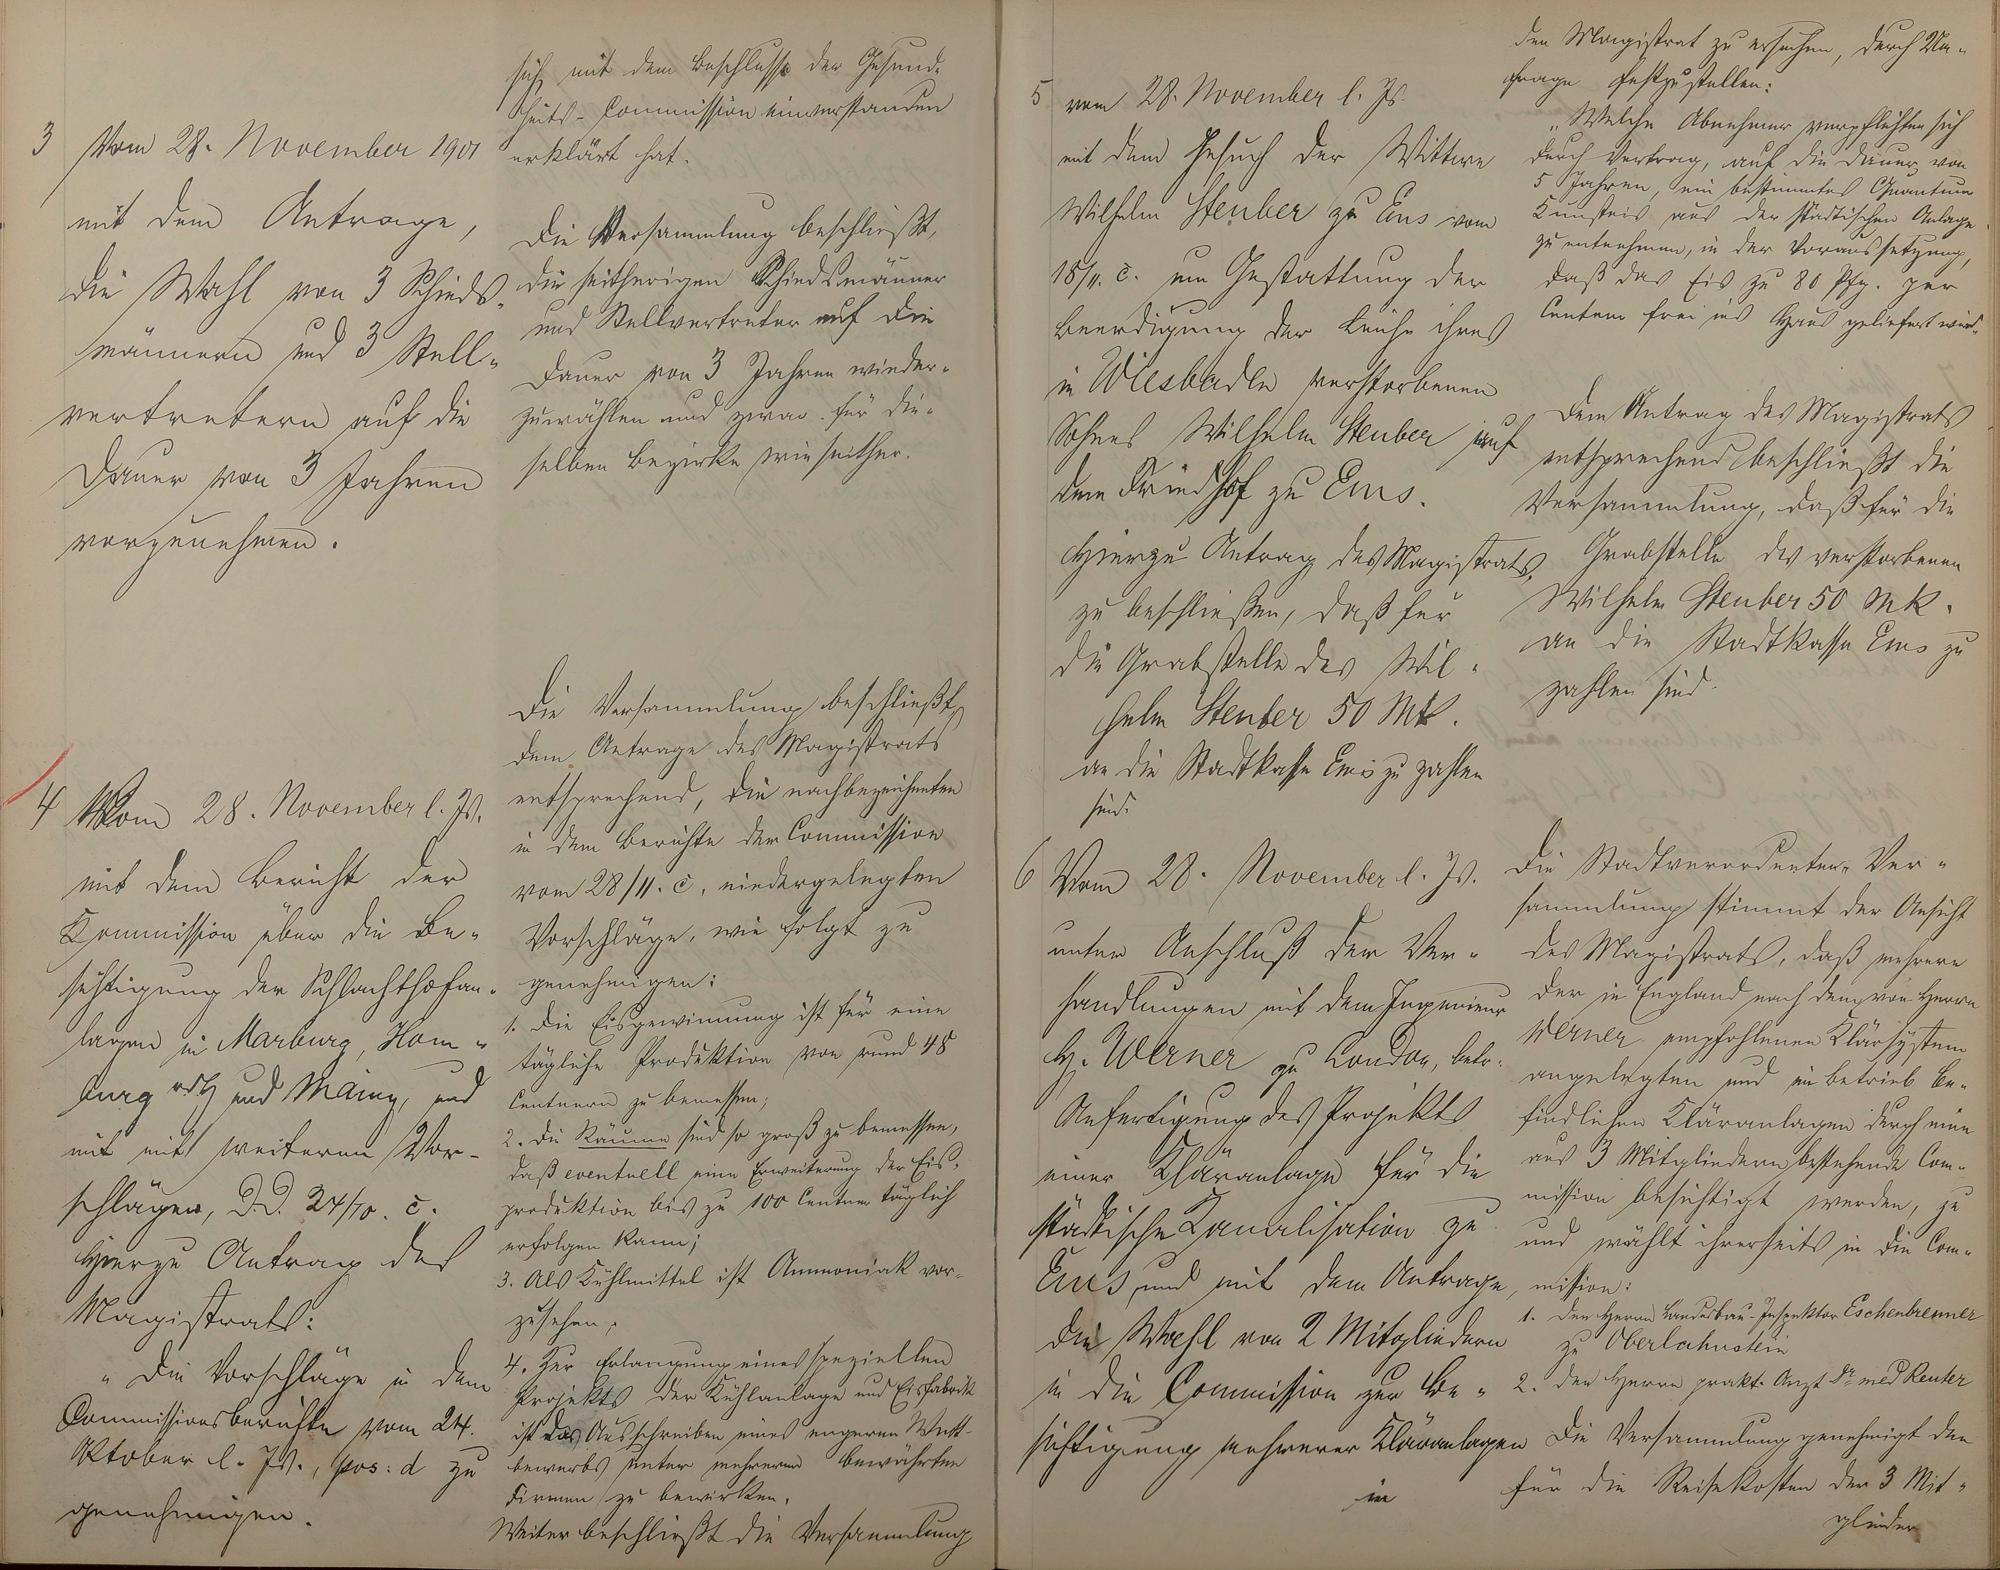 3 Vom 28. November 1901
mit dem Antrage,
die Wahl von 3 Schieds-
männern und 3 Stell-
vertretern auf die
Dauer von 3 Jahren
vorzunehmen.
4 Vom 28. November l. Js.
mit dem Bericht der
Kommission über die Be-
sichtigung der Schlachthofan-
lagen in Marburg, Hom-
burg vdH und Mainz, und
mit weiteren Vor-
schlägen, D.D. 24/10. c.
Hierzu Antrag des
Magistrats:
"Die Vorschläge in dem
Commissionsberichte vom 24.
Oktober l. Js., pos: d zu
genehmigen.
sich mit dem Beschlusse der Gesund-
heits-Commission einverstanden
erklärt hat.
Die Versammlung beschließt,
die seitherigen Schiedsmänner
und Stellvertreter auf die
Dauer von 3 Jahren wieder-
zuwählen und zwar für die-
selben Bezirke wie seither.
Die Versammlung beschließt,
dem Antrage des Magistrats
entsprechend, die nachbezeichneten
in dem Berichte der Commission
vom 28/11. c. niedergelegten
Vorschläge, wie folgt zu
genehmigen:
1. Die Eisgewinnung ist für eine
tägliche Produktion von rund 48
Centnern zu bemessen;
2. Die Räume sind so groß zu bemessen,
daß eventuell eine Erweiterung der Eis-
produktion bis zu 100 Centner täglich
erfolgen kann;
3. Als Kühlmittel ist Ammoniak vor-
zusehen;
4. Zur Erlangung eines speziellen
Projekts der Kühlanlage und Eisfabrik
ist das Ausschreiben eines engeren Wett-
bewerbs unter mehreren bewährten
Firmen zu bewirken.
Weiter beschließt die Versammlung
5 vom 28. November l. Js.
mit dem Gesuch der Wittwe
Wilhelm Steuber zu Ems vom
18/11. c. um Gestattung der
Beerdigung der Leiche ihres
in Wiesbaden verstorbenen
Sohnes Wilhelm Steuber auf
dem Friedhof zu Ems.
Hierzu Antrag des Magistrats,
zu beschließen, daß für
die Grabstelle des Wil-
helm Steuber 50 Mk.
an die Stadtkasse Ems zu zahlen
sind.
6 Vom 28. November l. Js.
unter Anschluß der Ver-
handlungen mit dem Ingenieur
H. Werner zu London, betr.
Anfertigung des Projekts
einer Kläranlage für die
städtische Kanalisation zu
Ems und mit dem Antrage,
die Wahl von 2 Mitgliedern
in die Commission zur Be-
sichtigung mehrerer Kläranlagen
in
den Magistrat zu ersuchen, durch Um-
frage festzustellen:
"Welche Abnehmer verpflichten sich
durch Vertrag, auf die Dauer von
5 Jahren, ein bestimmtes Quantum
Kunsteis aus der städtischen Anlage
zu entnehmen, in der Voraussetzung,
daß das Eis zu 80 Pfg. per
Centner frei ins Haus geliefert wird.
Dem Antrag des Magistrats
entsprechend beschließt die
Versammlung, daß für die
Grabstelle des verstorbenen
Wilhelm Steuber 50 Mk.
an die Stadtkasse Ems zu
zahlen sind.
Die Stadtverordneten-Ver-
sammlung stimmt der Ansicht
des Magistrats, daß mehrere
der in England nach dem von Herrn
Werner empfohlenen Klärsystem
angelegten und in betrieb be-
findlichen Kläranlagen durch eine
aus 3 Mitgliedern bestehende Com-
mission besichtigt werden, zu
und wählt ihrerseits in die Com-
mission:
1. den Herrn Landesbau-Inspektor Eschenbrenner
zu Oberlahnstein
2. den Herrn prakt. Arzt Dr. med Reuter
Die Versammlung genehmigt den
für die Reisekosten der 3 Mit-
glieder